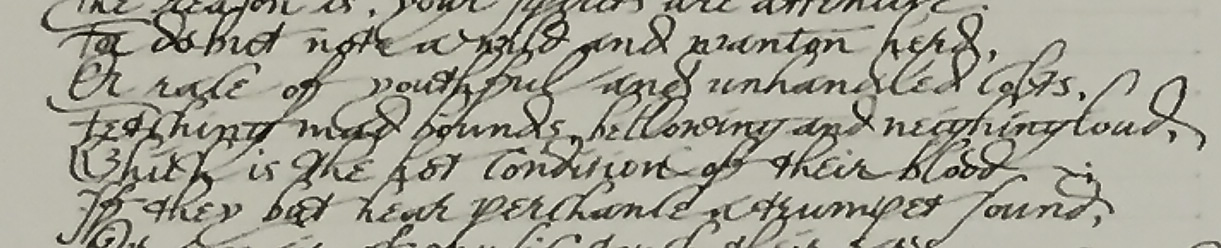 The reason is, your spirits are attentive:
For do but note a wild and wanton herd,
Or race of youthful and unhandled Colts,
Fetching mad bounds, bellowing and neighing loud,
Which is the hot Condition of their blood ;
If they but hear perchance a trumpet sound,
Or any air of music touch their ears